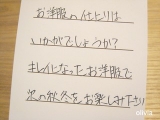 お洋服の仕上りは
いかがでしょうか?
キレイになったお洋服で
次の秋冬をお楽しみ下さい